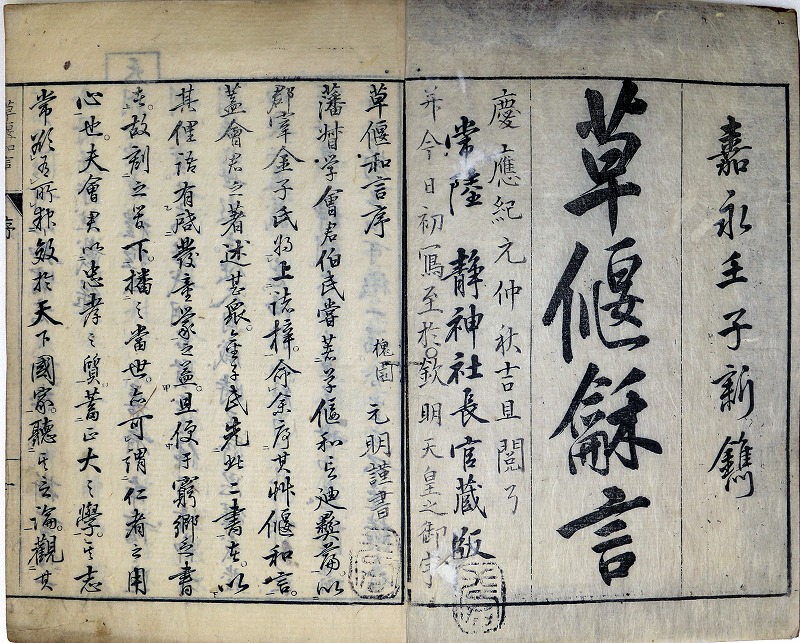 嘉永壬子新鐫
草偃龢言
慶應紀元仲秋吉旦閲了
常陸 静神社長官蔵版
并今日初寫至於欽明天皇之御宇
草偃和言序
槐園 元明謹書
藩督学會君伯民嘗著草偃和言迪彝篇以
郡宰金子氏将上諸梓命余序其艸偃和言
蓋會君之著述甚衆金子氏先此二書者以
其俚語有啓發童蒙之益且便于窮郷之書
故刻之下播之當世亦可謂仁者之用
心也夫會君以忠孝之質蓄正大之學其志
常欲有所報效於天下國家聽其言論觀其
草偃和言 序